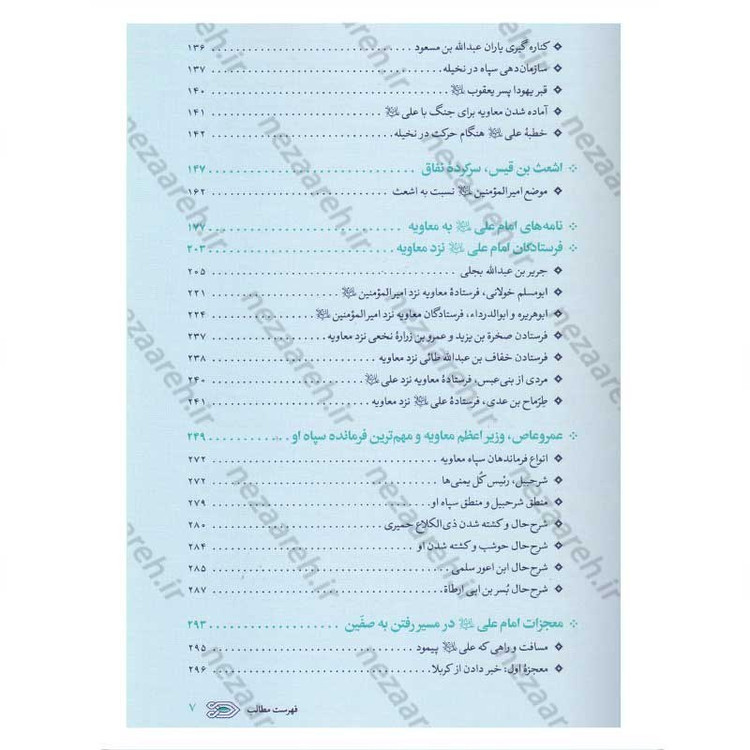 ❖ کناره گیری یاران عبدالله بن مسعود ۱۳۶
❖ سازمان‌دهی سپاه در نخیله ۱۳۷
❖ قبر یهودا پسر یعقوب ۱۴۰
❖ آماده شدن معاویه برای جنگ با علی ۱۴۱
❖ خطبهٔ علی هنگام حرکت در نخیله ۱۴۲
اشعث بن قیس، سرکردهٔ نفاق ۱۴۷
❖ موضع امیرالمؤمنین نسبت به اشعث ۱۶۲
نامه‌های امام علی به معاویه ۱۷۷
فرستادگان امام علی نزد معاویه ۲۰۳
❖ جریر بن عبدالله بجلی ۲۰۵
❖ ابومسلم خولانی، فرستادهٔ معاویه نزد امیرالمؤمنین ۲۲۱
❖ ابوهریره و ابوالدرداء، فرستادگان معاویه نزد امیرالمؤمنین ۲۲۴
❖ فرستادن صخرة بن یزید و عمرو بن زرارهٔ نخعی نزد معاویه ۲۳۷
❖ فرستادن خفاف بن عبدالله طائی نزد معاویه ۲۳۸
❖ مردی از بنی‌عبس، فرستادهٔ معاویه نزد علی ۲۴۰
❖ طِرْماح بن عدی، فرستادهٔ علی نزد معاویه ۲۴۱
عمروعاص، وزیر اعظم معاویه و مهم‌ترین فرمانده سپاه او ۲۴۹
❖ انواع فرماندهان سپاه معاویه ۲۷۲
❖ شرحبیل، رئیس کُل یمنی‌ها ۲۷۲
❖ منطق شرحبیل و منطق سپاه او ۲۷۹
❖ شرح‌حال و کشته شدن ذی‌الکلاع حمیری ۲۸۰
❖ شرح‌حال حوشب و کشته شدن او ۲۸۴
❖ شرح‌حال ابن اعور سلمی ۲۸۵
❖ شرح‌حال بُسر بن ابی ارطاة ۲۸۷
معجزات امام علی در مسیر رفتن به صفّین ۲۹۳
❖ مسافت و راهی که علی پیمود ۲۹۵
❖ معجزهٔ اول: خبر دادن از کربلا ۲۹۶
فهرست مطالب ۷
nezaareh.ir